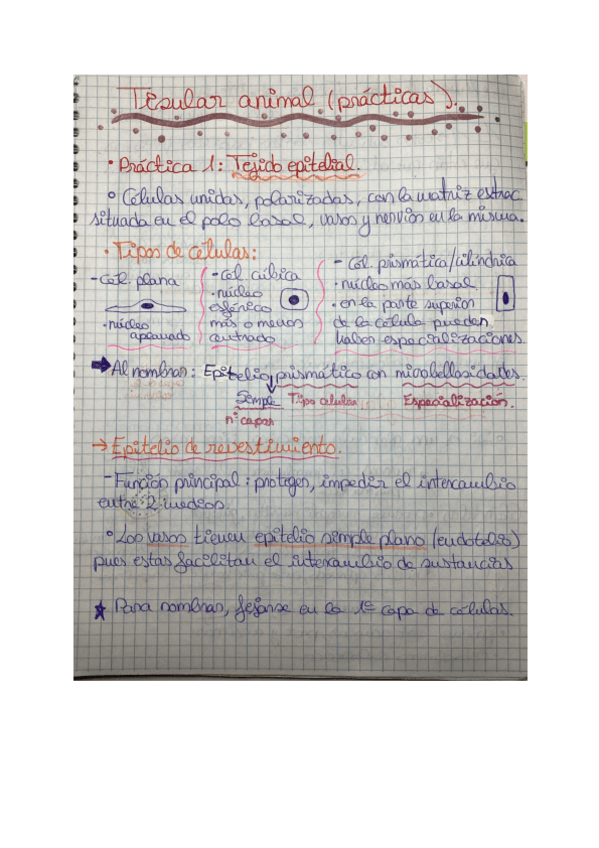 Tisular animal (prácticas).
• Práctica 1: Tejido epitelial.
° Células unidas, polarizadas, con la matriz extrac.
situada en el polo basal, vasos y nervios en la misma.
• Tipos de células:
- Cél. plana
• núcleo
aplanado
- Cél. cúbica
• núcleo
esférico
más o menos
centrado
- Cél. prismática/cilíndrica
• núcleo más basal
• en la parte superior
de la célula pueden
haber especializaciones.
→ Al nombrar: Epitelio prismático con microbellosidades.
Simple Tipo celular Especialización.
nº capas
→ Epitelio de revestimiento.
- Función principal: proteger, impedir el intercambio
entre 2 medios.
° Los vasos tienen epitelio simple plano (endotelio)
pues estas facilitan el intercambio de sustancias
★ Para nombrar, fijarse en la 1ª capa de células.